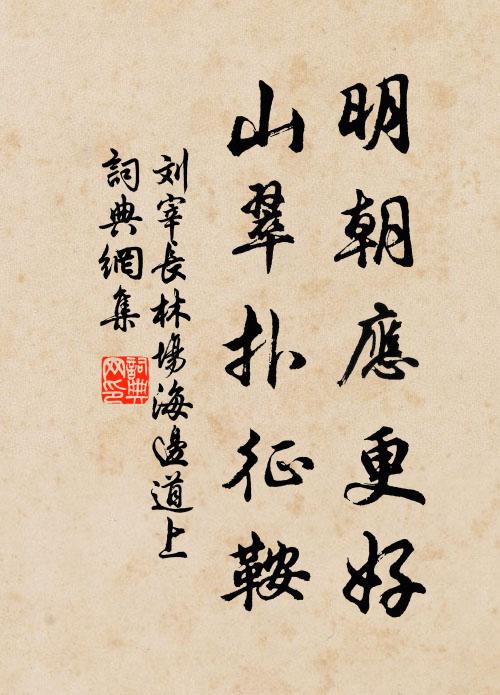 明朝應更好
山翠扑征鞍
刘宰長林場海邊道上
詞典網集
詞典
网印